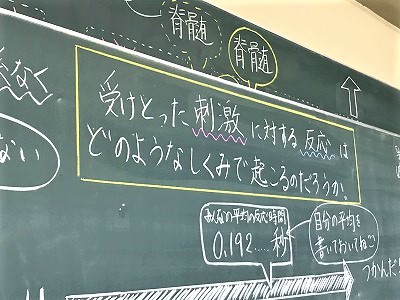 脊髄
脊髄
なく
ない
受けとった刺激に対する反応は
どのようなしくみで起こるのだろうか。
みんなの平均の反応時間
0.192....秒
自分の平均を
書いておいてねっ
つかんだ!